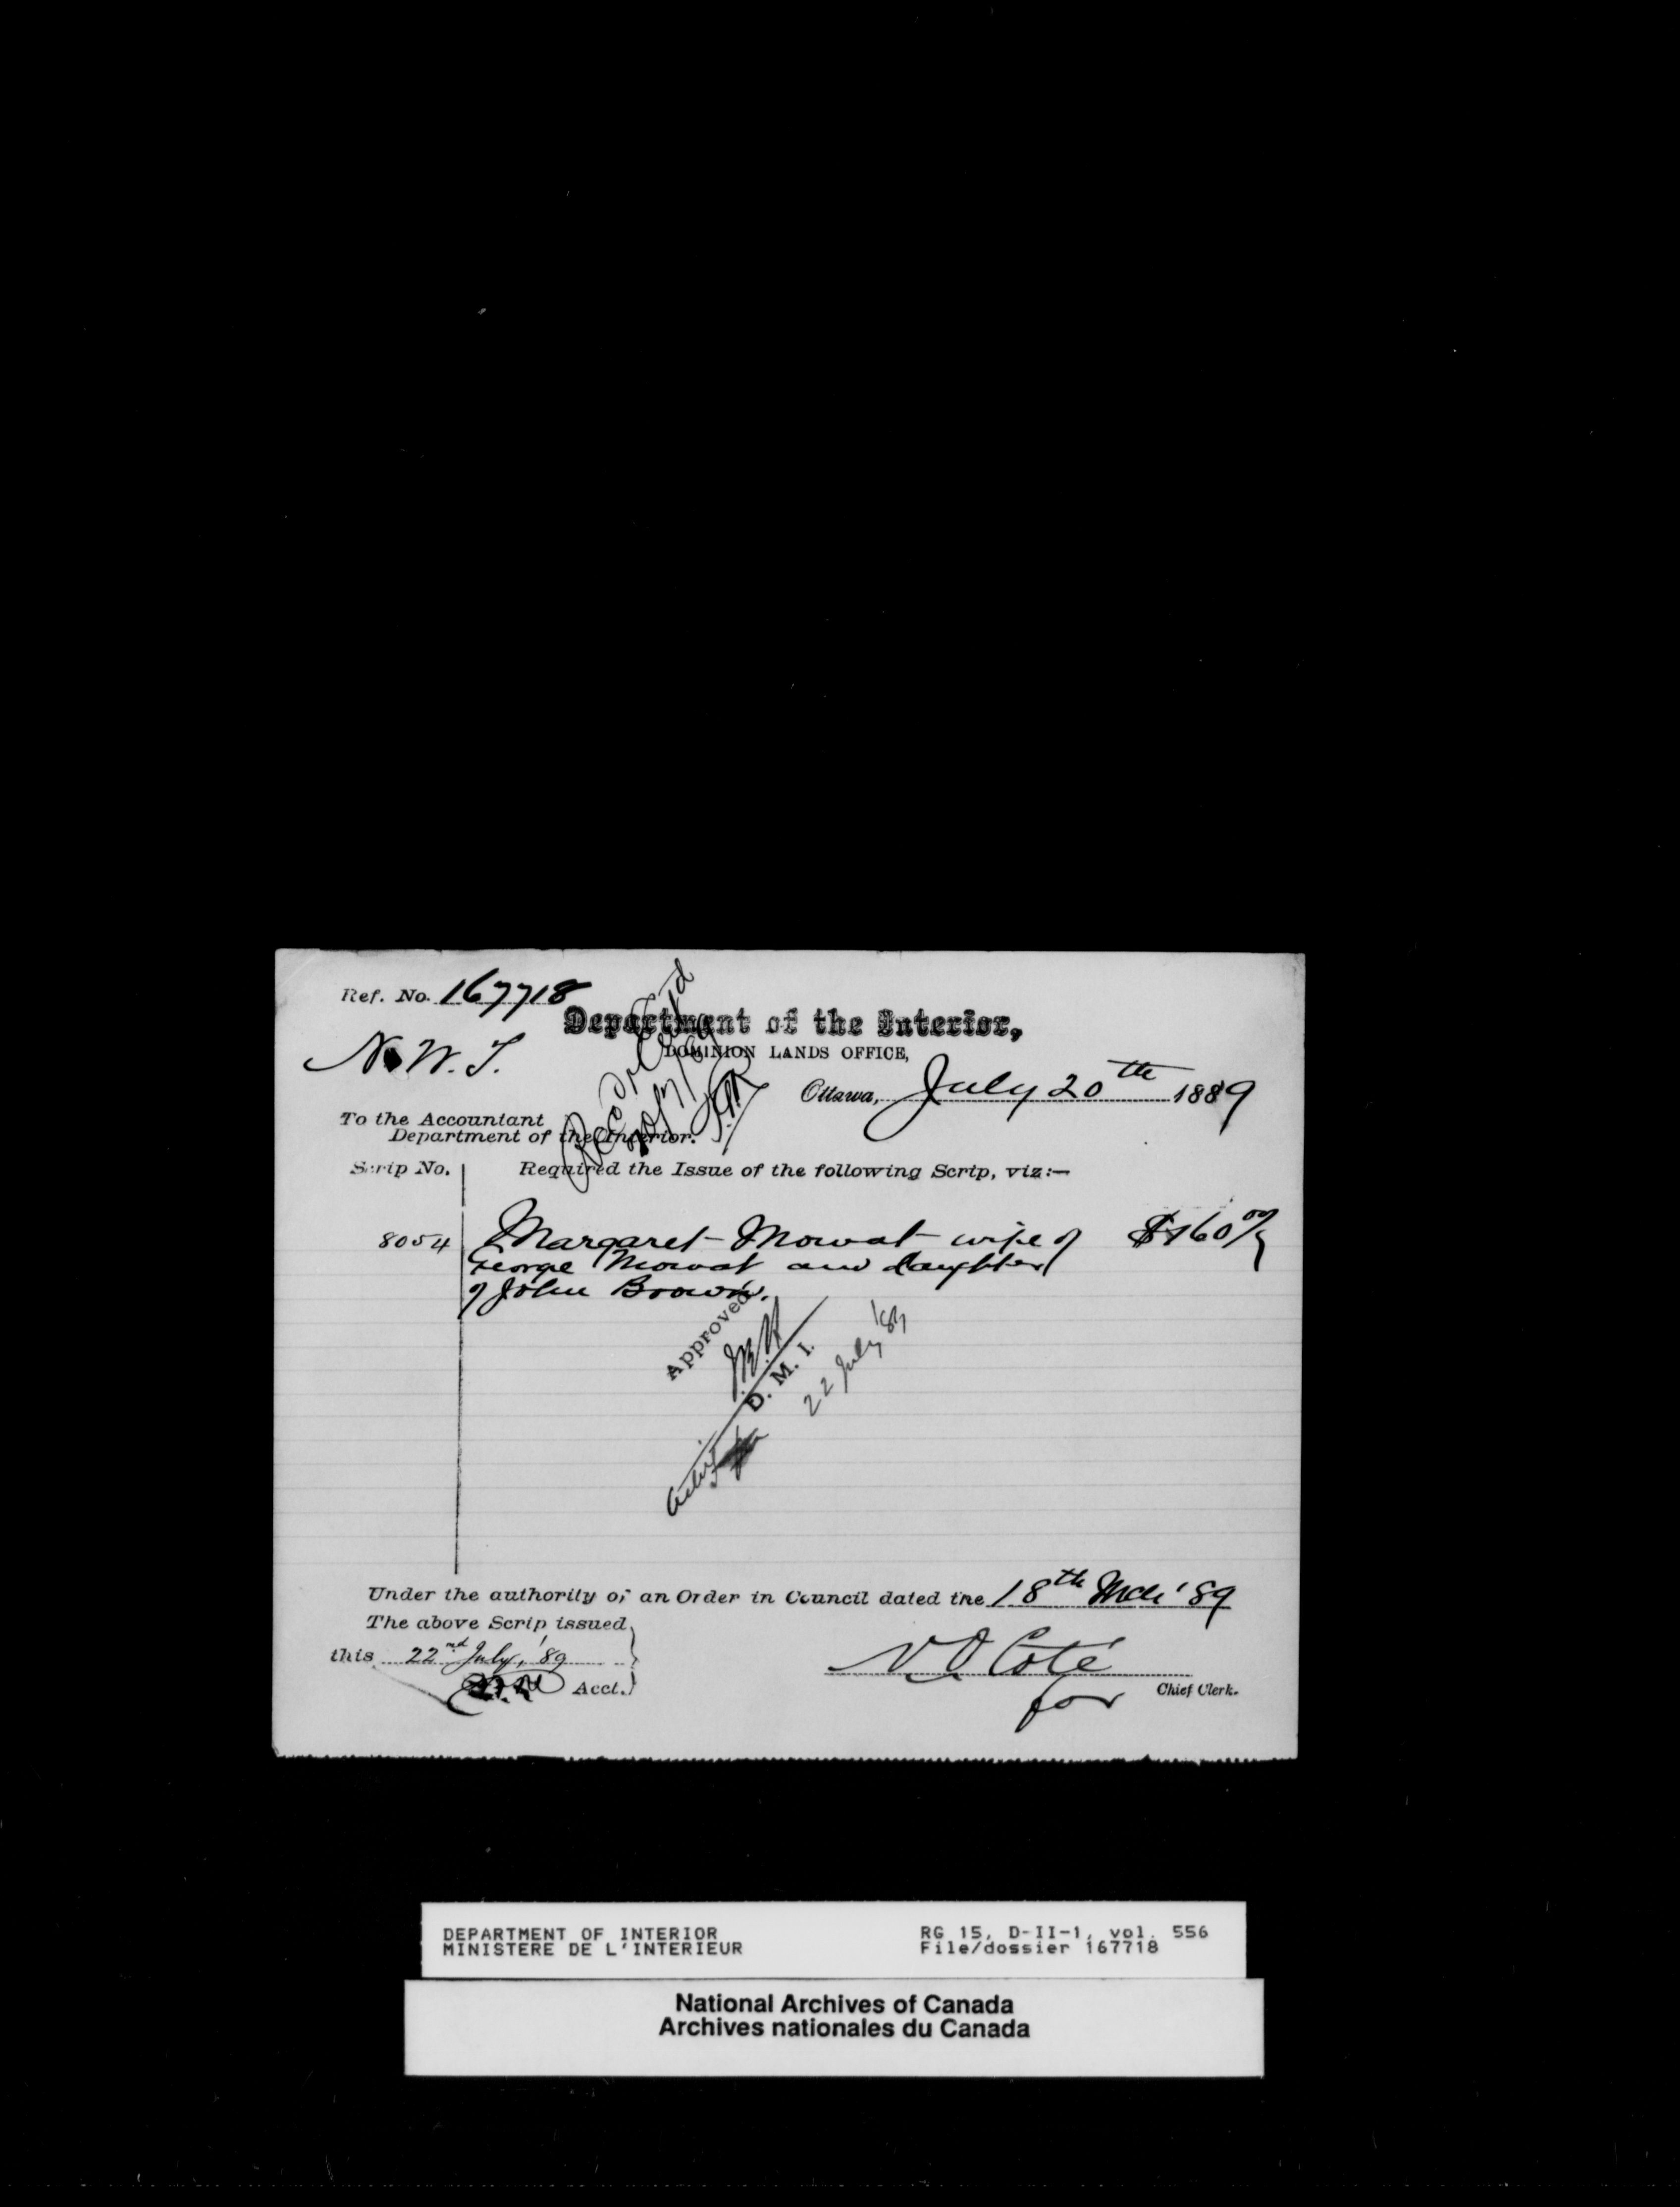 Ref. No. 167718
Department of the Interior,
DOMINION LANDS OFFICE,
N.W.T.
Ottawa, July 20th 1889
Recorded
20/7/89
To the Accountant
Department of the Interior.
Scrip No. Required the Issue of the following Scrip, viz:—
8054 Margaret Mowat wife of $160 00/
George Mowat and daughter
of John Brown.
Approved
D. M. I.
22 July '89
Acting
Under the authority of an Order in Council dated the 18th Mch '89
The above Scrip issued
this 22nd July, '89
Acct.
N.O. Coté
for Chief Clerk.
DEPARTMENT OF INTERIOR RG 15, D-II-1, vol. 556
MINISTERE DE L'INTERIEUR File/dossier 167718
National Archives of Canada
Archives nationales du Canada